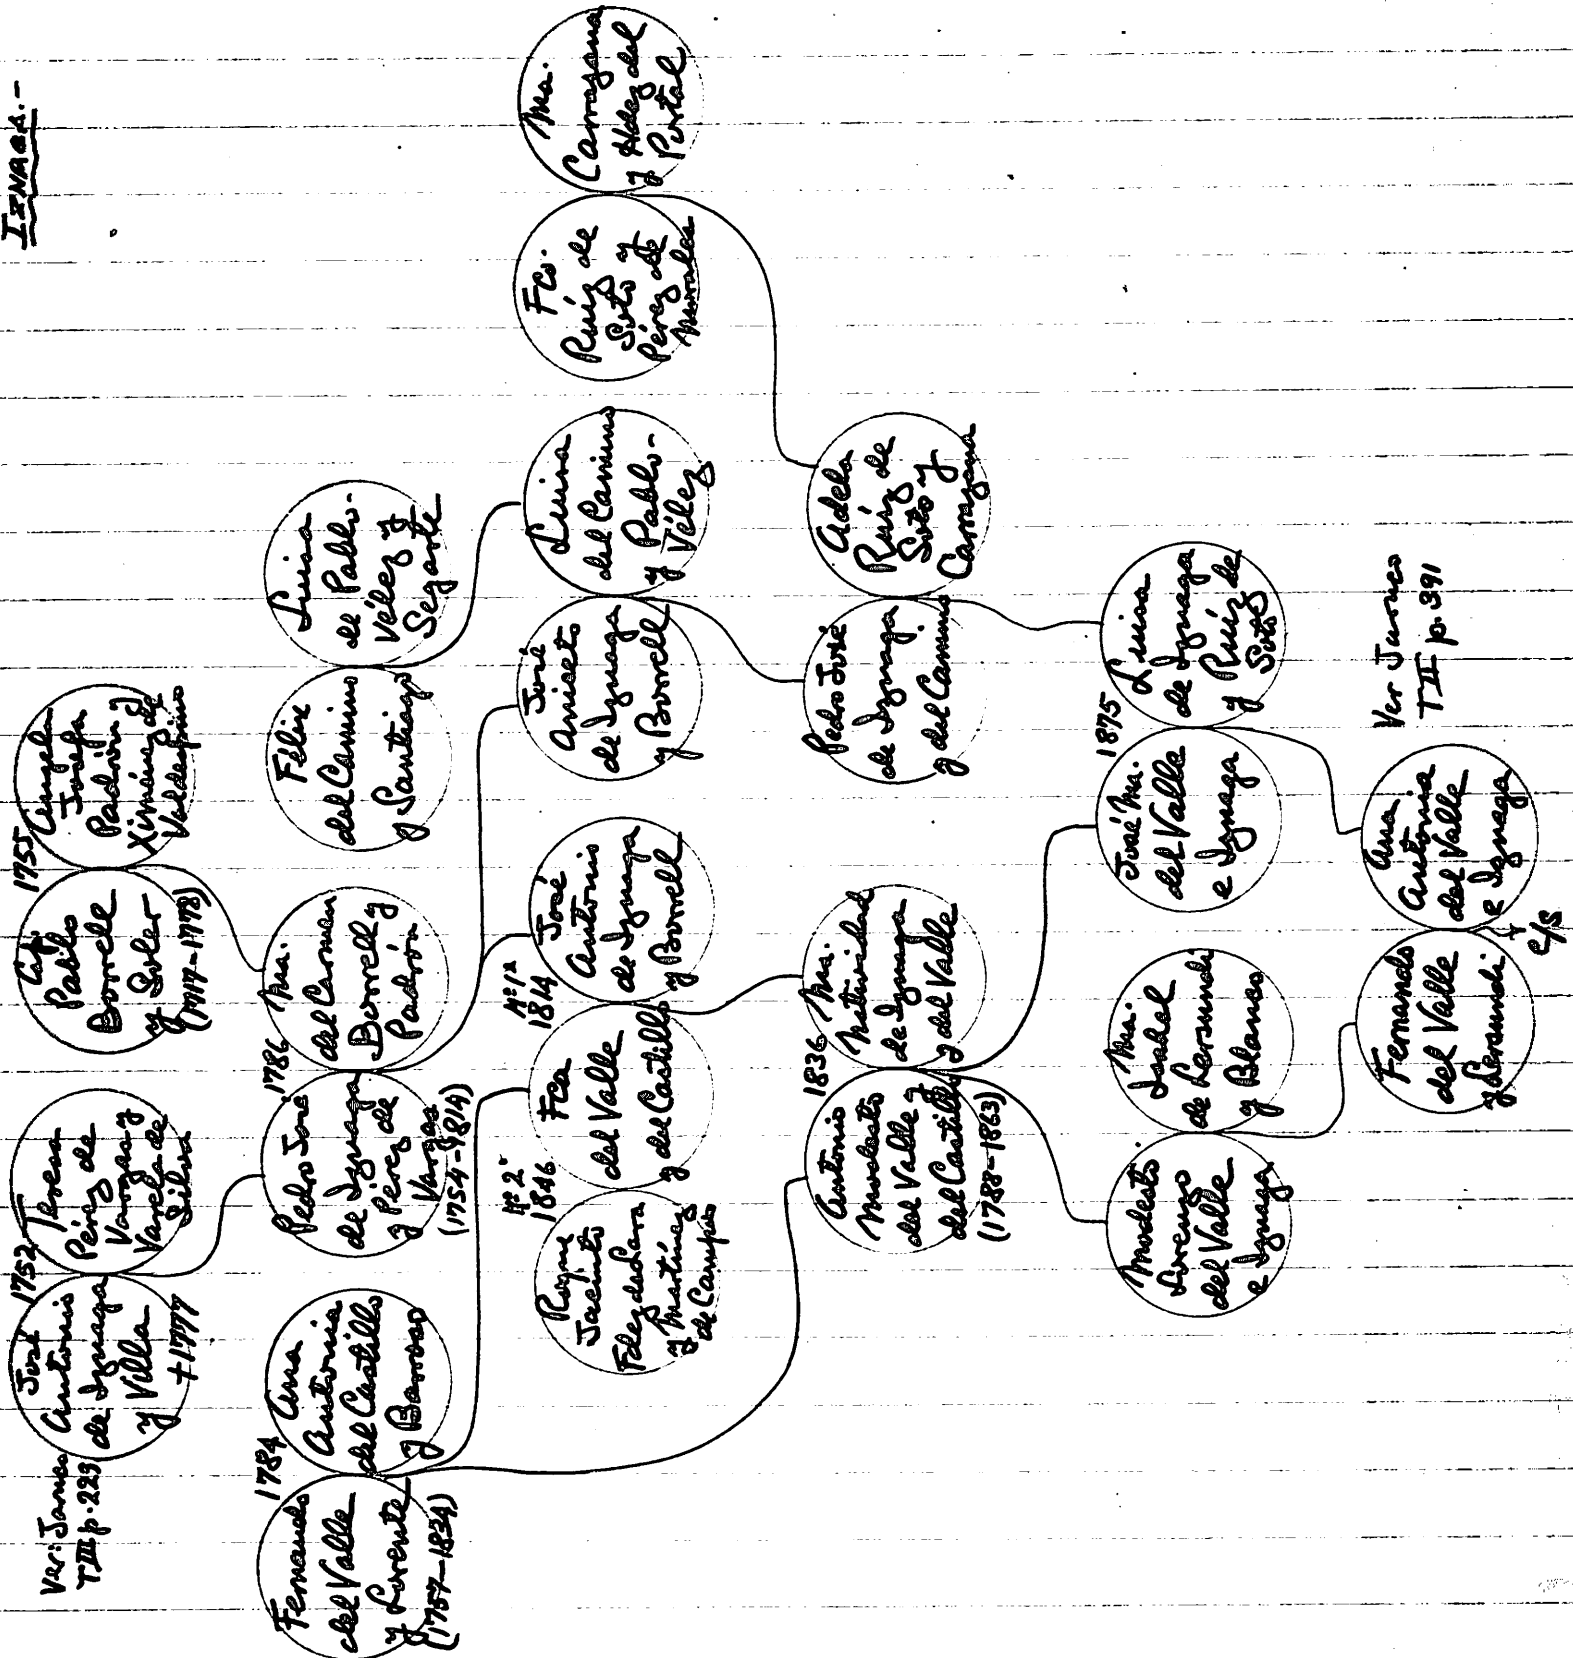 IZNAGA.-
Ver: Jaruco
TIII p. 223
José
Antonio
de Iznaga
y Villa
+1777
1752
Teresa
Pérez de
Vargas y
Varela de
Silva
Cap.
Pablo
Borrell
y Soler
(1717-1778)
1755
Angela
Josefa
Padrón y
Ximénez de
Valdespino
Fernando
del Valle
y Lorente
(1757-1834)
1784
Ana
Antonia
del Castillo
y Barroso
Pedro José
de Iznaga
y Pérez de
Vargas
(1754-1814)
1786
Ma.
del Carmen
Borrell y
Padrón
Félix
del Camino
y Santiago
Luisa
de Pablo-
Vélez y
Segarte
Roque
Jacinto
Fdez de Lara
y Martínez
de Campos
Nº 2º
1846
Fca
del Valle
y del Castillo
Nº 1º
1814
José
Antonio
de Iznaga
y Borrell
José
Aniceto
de Iznaga
y Borrell
Luisa
del Camino
y Pablo-
Vélez
Fco.
Ruíz de
Soto y
Pérez de
Morales
Ma.
Carragana
y Hdez del
Portal
Antonio
Modesto
del Valle y
del Castillo
(1788-1863)
1836
Ma.
Natividad
de Iznaga
y del Valle
Pedro José
de Iznaga
y del Camino
Adela
Ruíz de
Soto y
Carragana
Modesto
Lorenzo
del Valle
e Iznaga
Ma.
Isabel
de Lersundi
y Blanco
José Ma.
del Valle
e Iznaga
1875
Luisa
de Iznaga
y Ruíz de
Soto
Fernando
del Valle
y Lersundi
Ana
Antonia
del Valle
e Iznaga
c/s
Ver Jaruco
TII p. 391